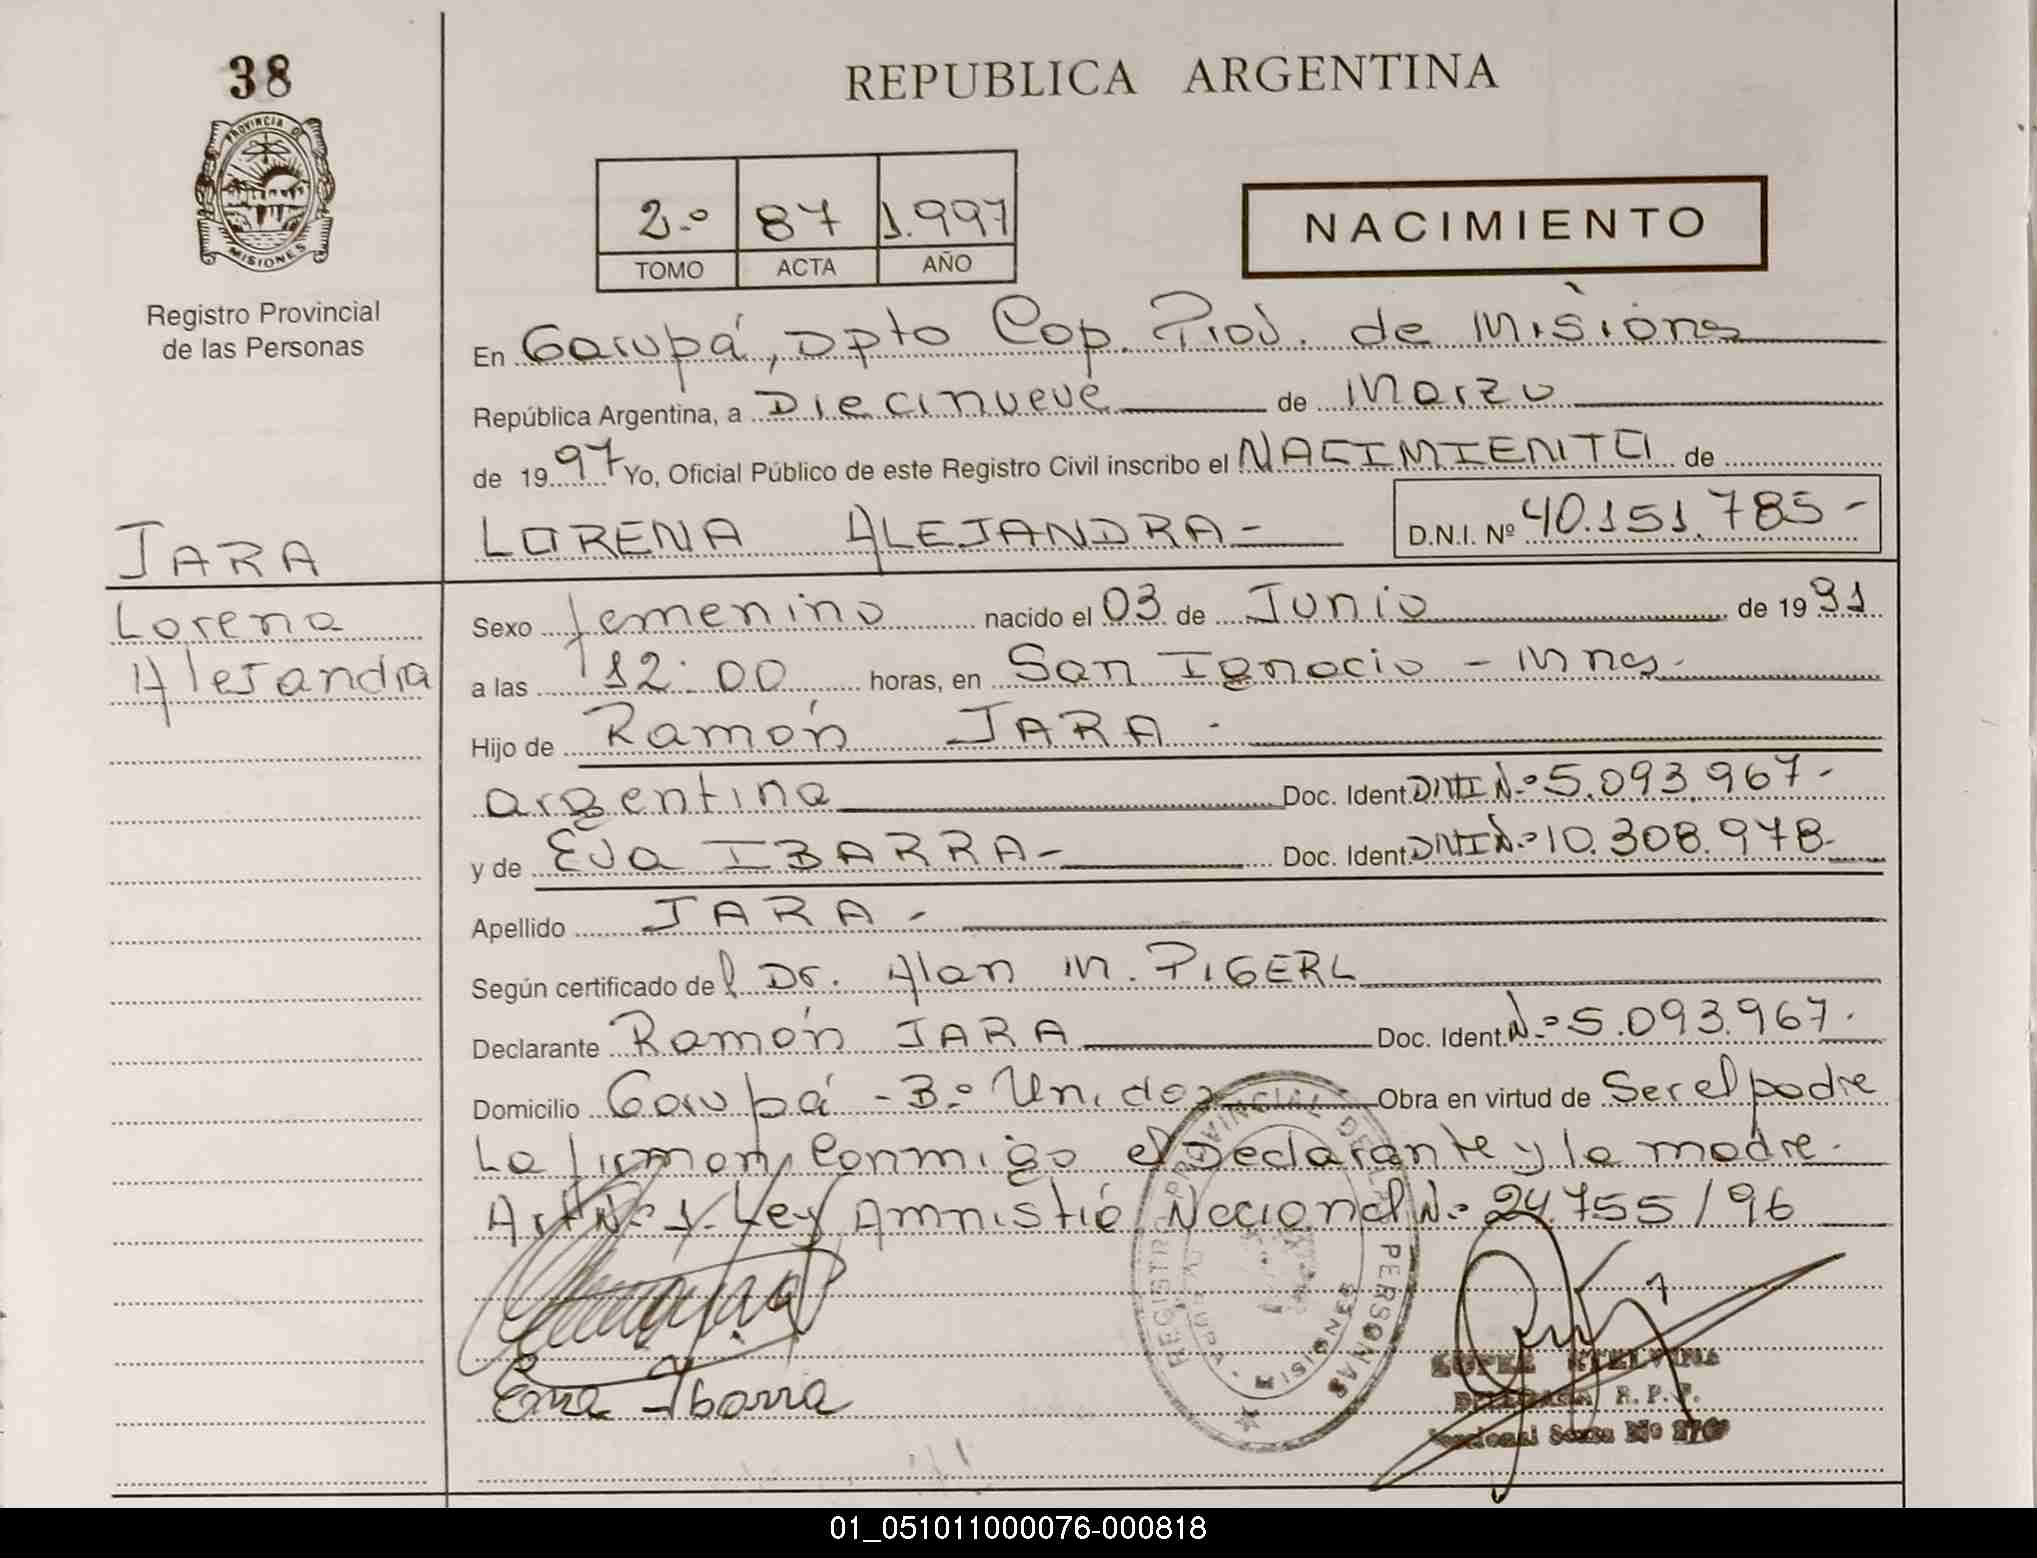 38
PROVINCIA DE
MISIONES
Registro Provincial
de las Personas
REPUBLICA ARGENTINA
2.º 87 1.997
TOMO ACTA AÑO
NACIMIENTO
En Garupá, Dpto Cap. Prov. de Misiones
República Argentina, a Diecinueve de Marzo
de 1997 Yo, Oficial Público de este Registro Civil inscribo el NACIMIENTO de
LORENA ALEJANDRA - D.N.I. Nº 40.151.785-
JARA
Lorena
Alejandra
Sexo femenino nacido el 03 de Junio de 1991
a las 12:00 horas, en San Ignacio - Mnes.
Hijo de Ramón JARA -
argentina Doc. Ident. DNI N.º 5.093.967-
y de Eva IBARRA- Doc. Ident. DNI N.º 10.308.978-
Apellido JARA -
Según certificado del Dr. Alan M. PIGERL
Declarante Ramón JARA Doc. Ident. N.º 5.093.967.
Domicilio Garupá - B.º Unidos Obra en virtud de Ser el padre
La firman conmigo el Declarante y la madre.
Art Nº 1. Ley Amnistía Nacional N.º 24.755/96
REGISTRO PROVINCIAL DE LAS PERSONAS
GARUPA - MISIONES
Eva Ibarra
DELEGADA R.P.P.
01_051011000076-000818